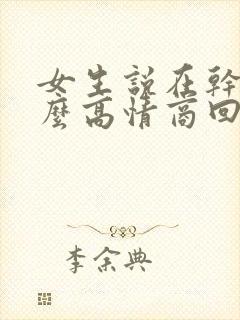 女生說在幹
麼高情商回
李余典